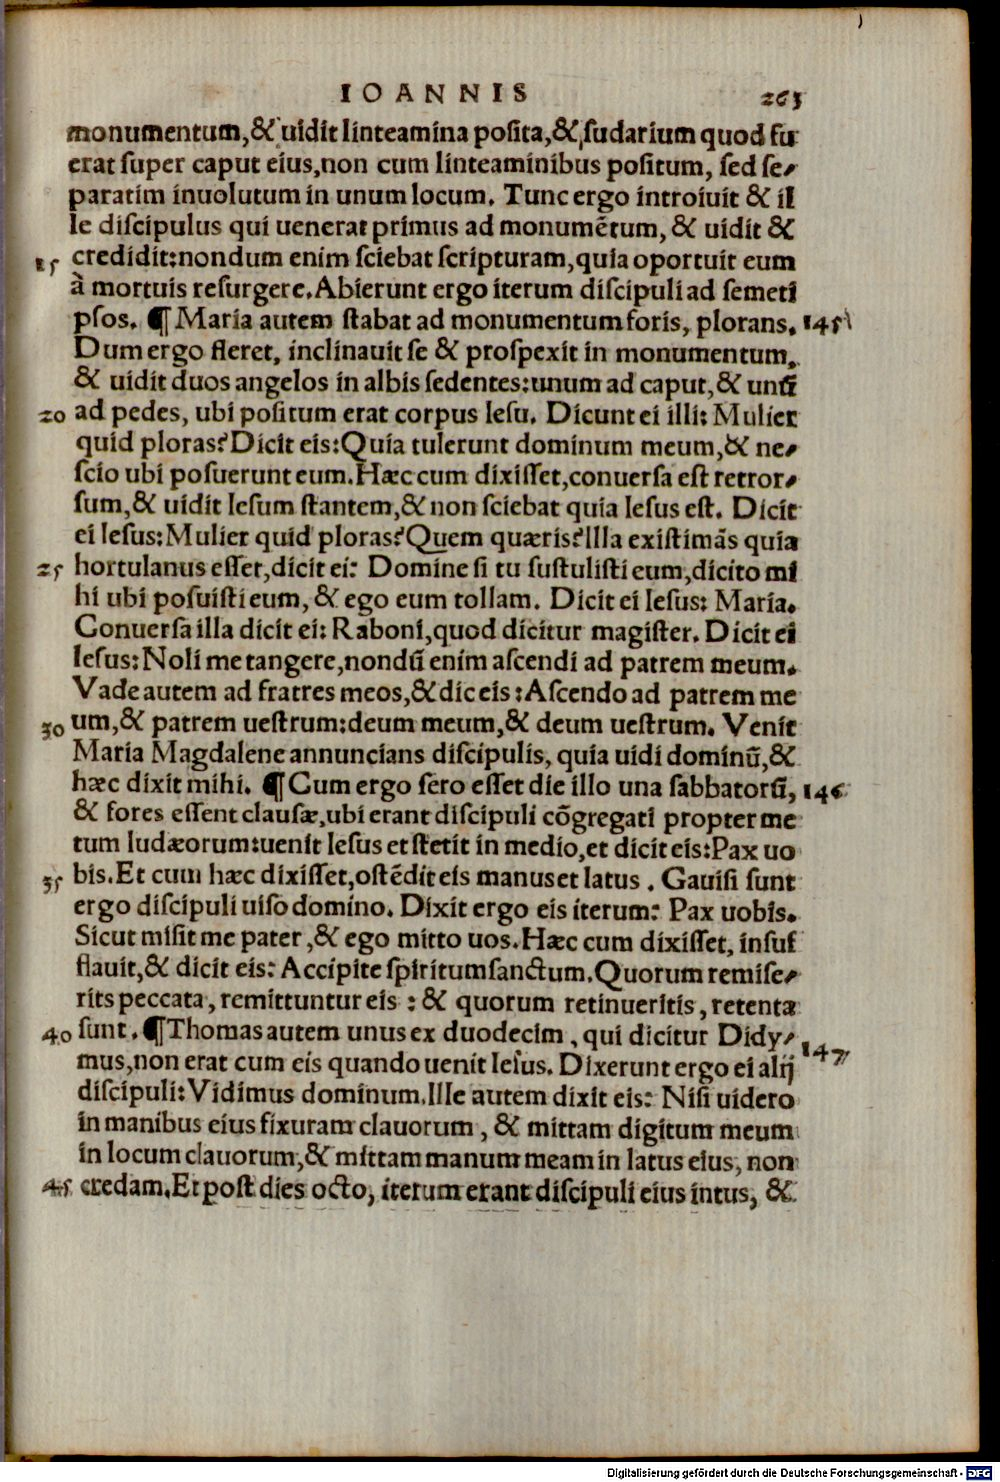 IOANNIS 263
monumentum,& uidit linteamina posita,& sudarium quod fu
erat super caput eius,non cum linteaminibus positum, sed se-
paratim inuolutum in unum locum. Tunc ergo introiuit & il
le discipulus qui uenerat primus ad monumētum, & uidit &
15 credidit:nondum enim sciebat scripturam,quia oportuit eum
à mortuis resurgere.Abierunt ergo iterum discipuli ad semeti
psos. ¶ Maria autem stabat ad monumentum foris, plorans. 145
Dum ergo fleret, inclinauit se & prospexit in monumentum,
& uidit duos angelos in albis sedentes:unum ad caput,& unū
20 ad pedes, ubi positum erat corpus Iesu. Dicunt ei illi: Mulier
quid ploras?Dicit eis:Quia tulerunt dominum meum,& ne-
scio ubi posuerunt eum.Hæc cum dixisset,conuersa est retror-
sum,& uidit Iesum stantem,& non sciebat quia Iesus est. Dicit
ei Iesus:Mulier quid ploras?Quem quæris?Illa existimãs quia
25 hortulanus esset,dicit ei: Domine si tu sustulisti eum,dicito mi
hi ubi posuisti eum, & ego eum tollam. Dicit ei Iesus: Maria.
Conuersa illa dicit ei: Raboni,quod dicitur magister. Dicit ei
Iesus:Noli me tangere,nondū enim ascendi ad patrem meum.
Vade autem ad fratres meos,& dic eis:Ascendo ad patrem me
30 um,& patrem uestrum:deum meum,& deum uestrum. Venit
Maria Magdalene annuncians discipulis, quia uidi dominū,&
hæc dixit mihi. ¶ Cum ergo sero esset die illo una sabbatorū, 146
& fores essent clausæ,ubi erant discipuli cõgregati propter me
tum Iudæorum:uenit Iesus et stetit in medio,et dicit eis:Pax uo
35 bis.Et cum hæc dixisset,ostēdit eis manus et latus . Gauisi sunt
ergo discipuli uiso domino. Dixit ergo eis iterum: Pax uobis.
Sicut misit me pater ,& ego mitto uos.Hæc cum dixisset, insuf
flauit,& dicit eis: Accipite spiritum sanctum.Quorum remise-
ritis peccata, remittuntur eis : & quorum retinueritis, retenta
40 sunt. ¶Thomas autem unus ex duodecim , qui dicitur Didy- 147
mus,non erat cum eis quando uenit Iesus. Dixerunt ergo ei alij
discipuli:Vidimus dominum.Ille autem dixit eis: Nisi uidero
in manibus eius fixuram clauorum , & mittam digitum meum
in locum clauorum,& mittam manum meam in latus eius, non
45 credam.Et post dies octo, iterum erant discipuli eius intus, &
Digitalisierung gefördert durch die Deutsche Forschungsgemeinschaft - DFG